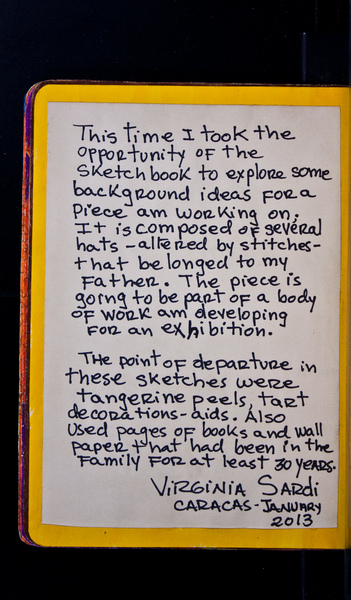 This time I took the
opportunity of the
sketchbook to explore some
background ideas for a
piece am working on.
It is composed of several
hats - altered by stitches -
that belonged to my
Father. The piece is
going to be part of a body
of work am developing
for an exhibition.
The point of departure in
these sketches were
tangerine peels, tart
decorations - aids. Also
used pages of books and wall
paper that had been in the
family for at least 30 years.
Virginia Sardi
Caracas - January
2013